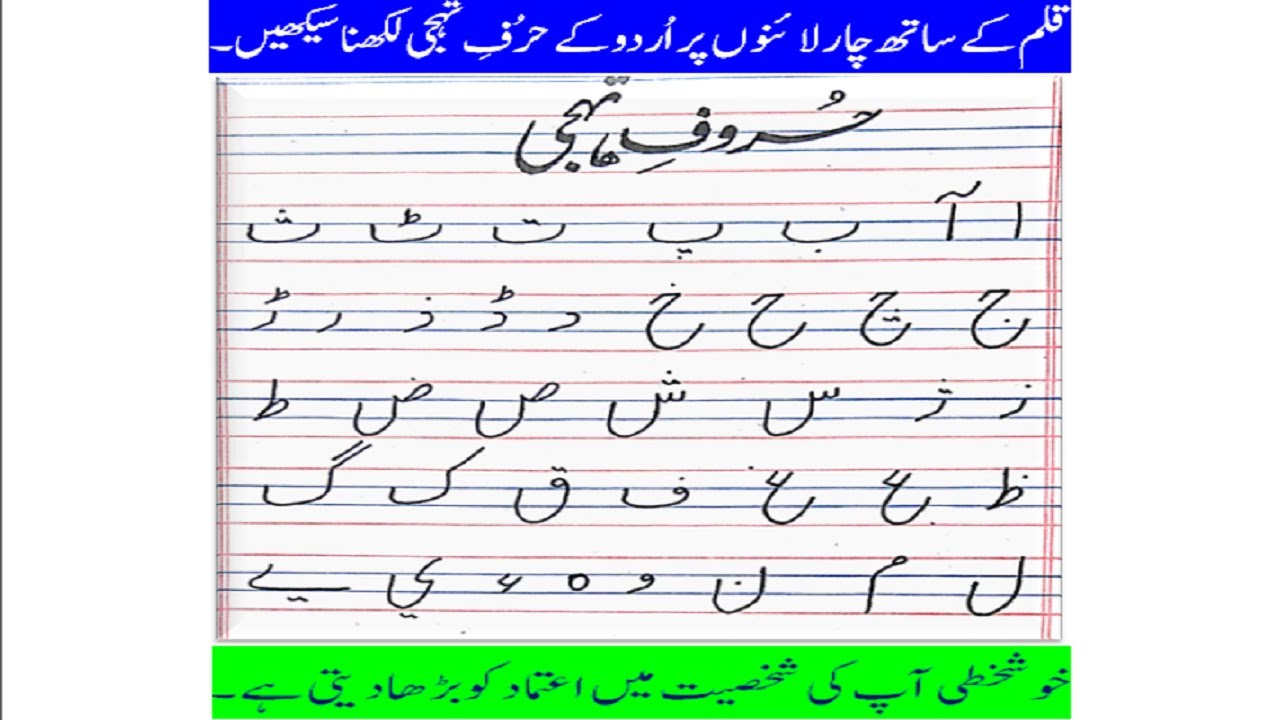 قلم کے ساتھ چار لائنوں پر اُردو کے حرُفِ تہجی لکھنا سیکھیں۔
حُروفِ تہجی
ا آ ب پ ت ٹ ث
ج چ ح خ د ڈ ذ ر ڑ
ز ژ س ش ص ض ط
ظ ع غ ف ق ک گ
ل م ن و ہ ء ي ے
خوشخطی آپ کی شخصیت میں اعتماد کو بڑھا دیتی ہے۔